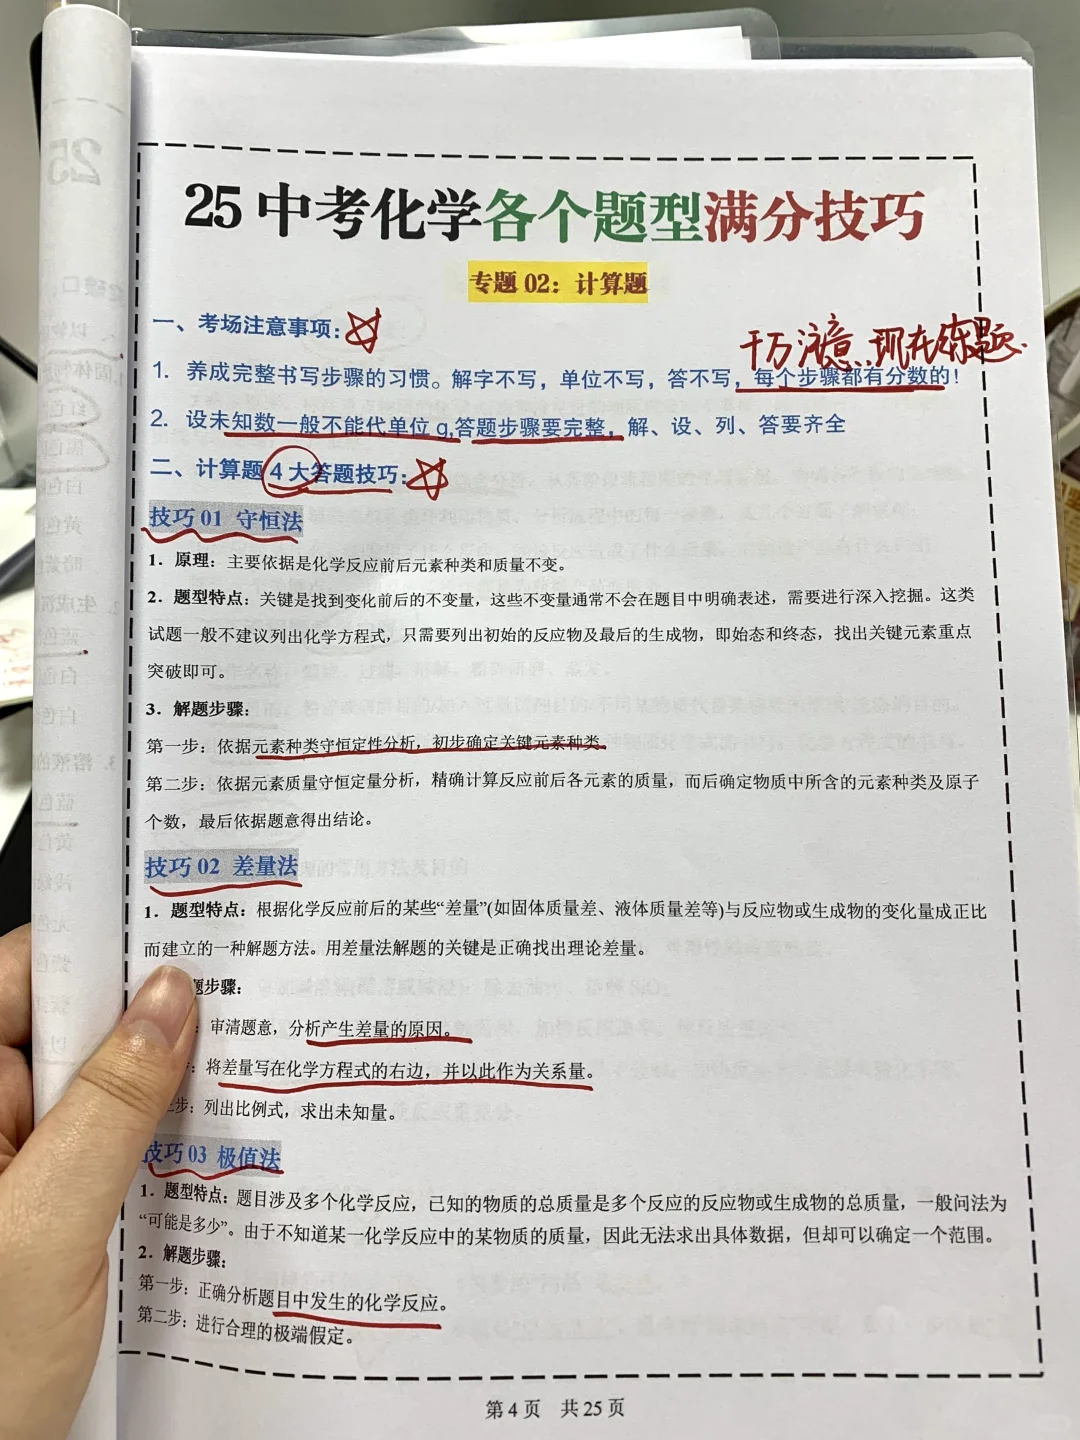 25中考化学各个题型满分技巧
专题 02：计算题
一、考场注意事项：
千万注意 现在练题.
1. 养成完整书写步骤的习惯。解字不写，单位不写，答不写，每个步骤都有分数的！
2. 设未知数一般不能代单位 g,答题步骤要完整，解、设、列、答要齐全
二、计算题 4 大答题技巧：
技巧 01 守恒法
1．原理：主要依据是化学反应前后元素种类和质量不变。
2．题型特点：关键是找到变化前后的不变量，这些不变量通常不会在题目中明确表述，需要进行深入挖掘。这类
试题一般不建议列出化学方程式，只需要列出初始的反应物及最后的生成物，即始态和终态，找出关键元素重点
突破即可。
3．解题步骤：
第一步：依据元素种类守恒定性分析，初步确定关键元素种类。
第二步：依据元素质量守恒定量分析，精确计算反应前后各元素的质量，而后确定物质中所含的元素种类及原子
个数，最后依据题意得出结论。
技巧 02 差量法
1．题型特点：根据化学反应前后的某些“差量”(如固体质量差、液体质量差等)与反应物或生成物的变化量成正比
而建立的一种解题方法。用差量法解题的关键是正确找出理论差量。
题步骤：
：审清题意，分析产生差量的原因。
：将差量写在化学方程式的右边，并以此作为关系量。
步：列出比例式，求出未知量。
技巧 03 极值法
1．题型特点：题目涉及多个化学反应，已知的物质的总质量是多个反应的反应物或生成物的总质量，一般问法为
“可能是多少”。由于不知道某一化学反应中的某物质的质量，因此无法求出具体数据，但却可以确定一个范围。
2．解题步骤：
第一步：正确分析题目中发生的化学反应。
第二步：进行合理的极端假定。
第 4 页 共 25 页